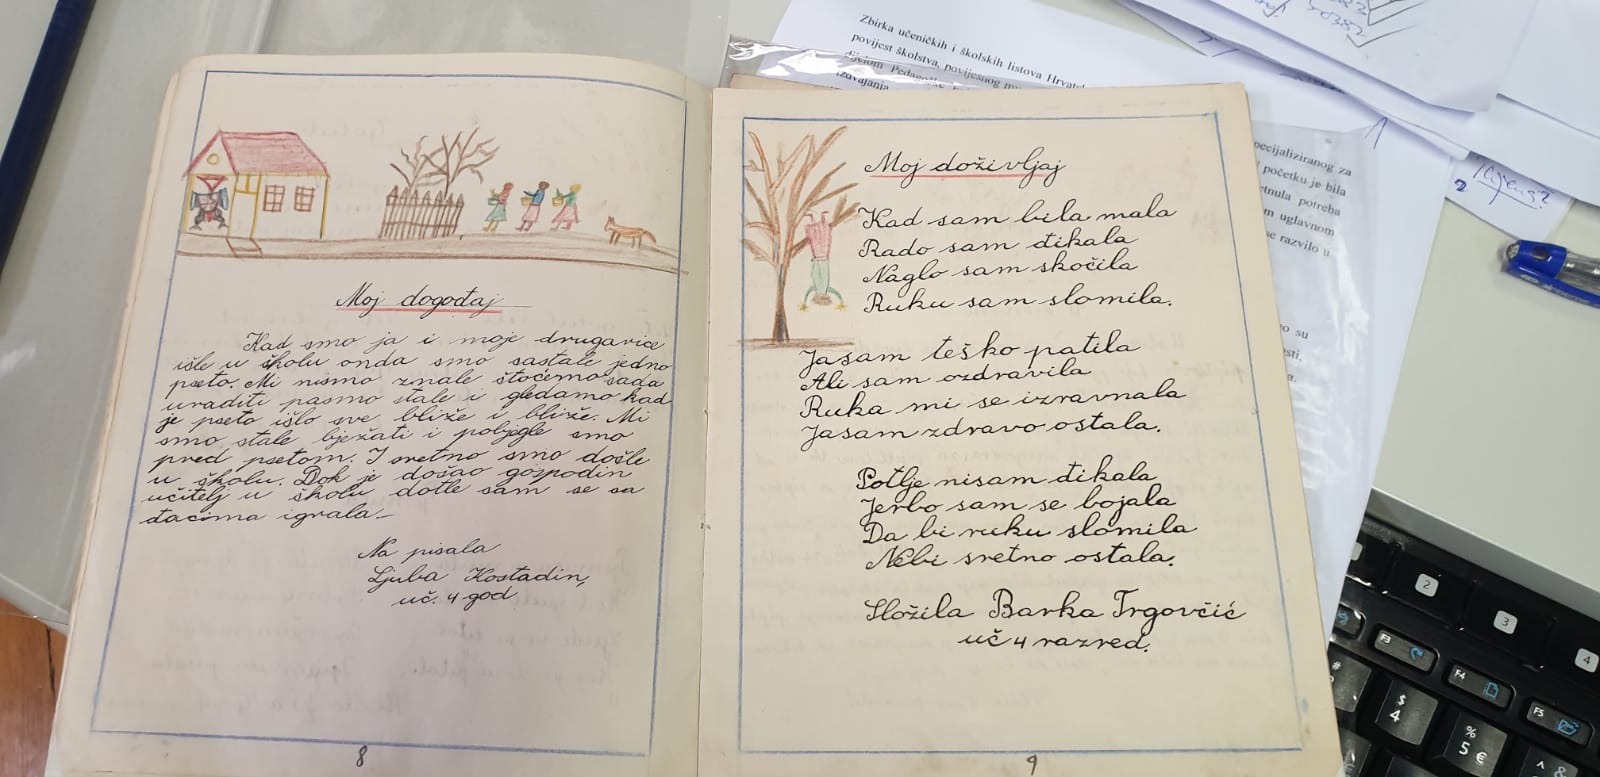 Moj događaj
Kad smo ja i moje drugarice
išle u školu onda smo sastale jedno
pseto. Mi nismo znale štoćemo sada
uraditi pasmo stale i gledamo kad
je pseto išlo sve bliže i bliže. Mi
smo stale bježati i pobjegle smo
pred psetom. I sretno smo došle
u školu. Dok je došao gospodin
učitelj u školu dotle sam se sa
đacima igrala.
Na pisala
Ljuba Kostadin,
uč. 4 god
8
Moj doživljaj
Kad sam bila mala
Rado sam đikala
Naglo sam skočila
Ruku sam slomila.
Jasam teško patila
Ali sam ozdravila
Ruka mi se izravnala
Jasam zdravo ostala.
Potlje nisam đikala
Jerbo sam se bojala
Da bi ruku slomila
Nebi sretno ostala.
Složila Barka Trgovčić
uč 4 razred.
9
Zbirka učeničkih i školskih listova Hrvatsk
povijest školstva, povijesnog mu
dijelom Pedagoške
izdvajanja
pecijaliziranog za
početku je bila
etnula potreba
m uglavnom
se razvilo u
o su
esti,
50382
1
2
2
3
4
F3
F4
F5
#
$
4
%
5 €
^
&